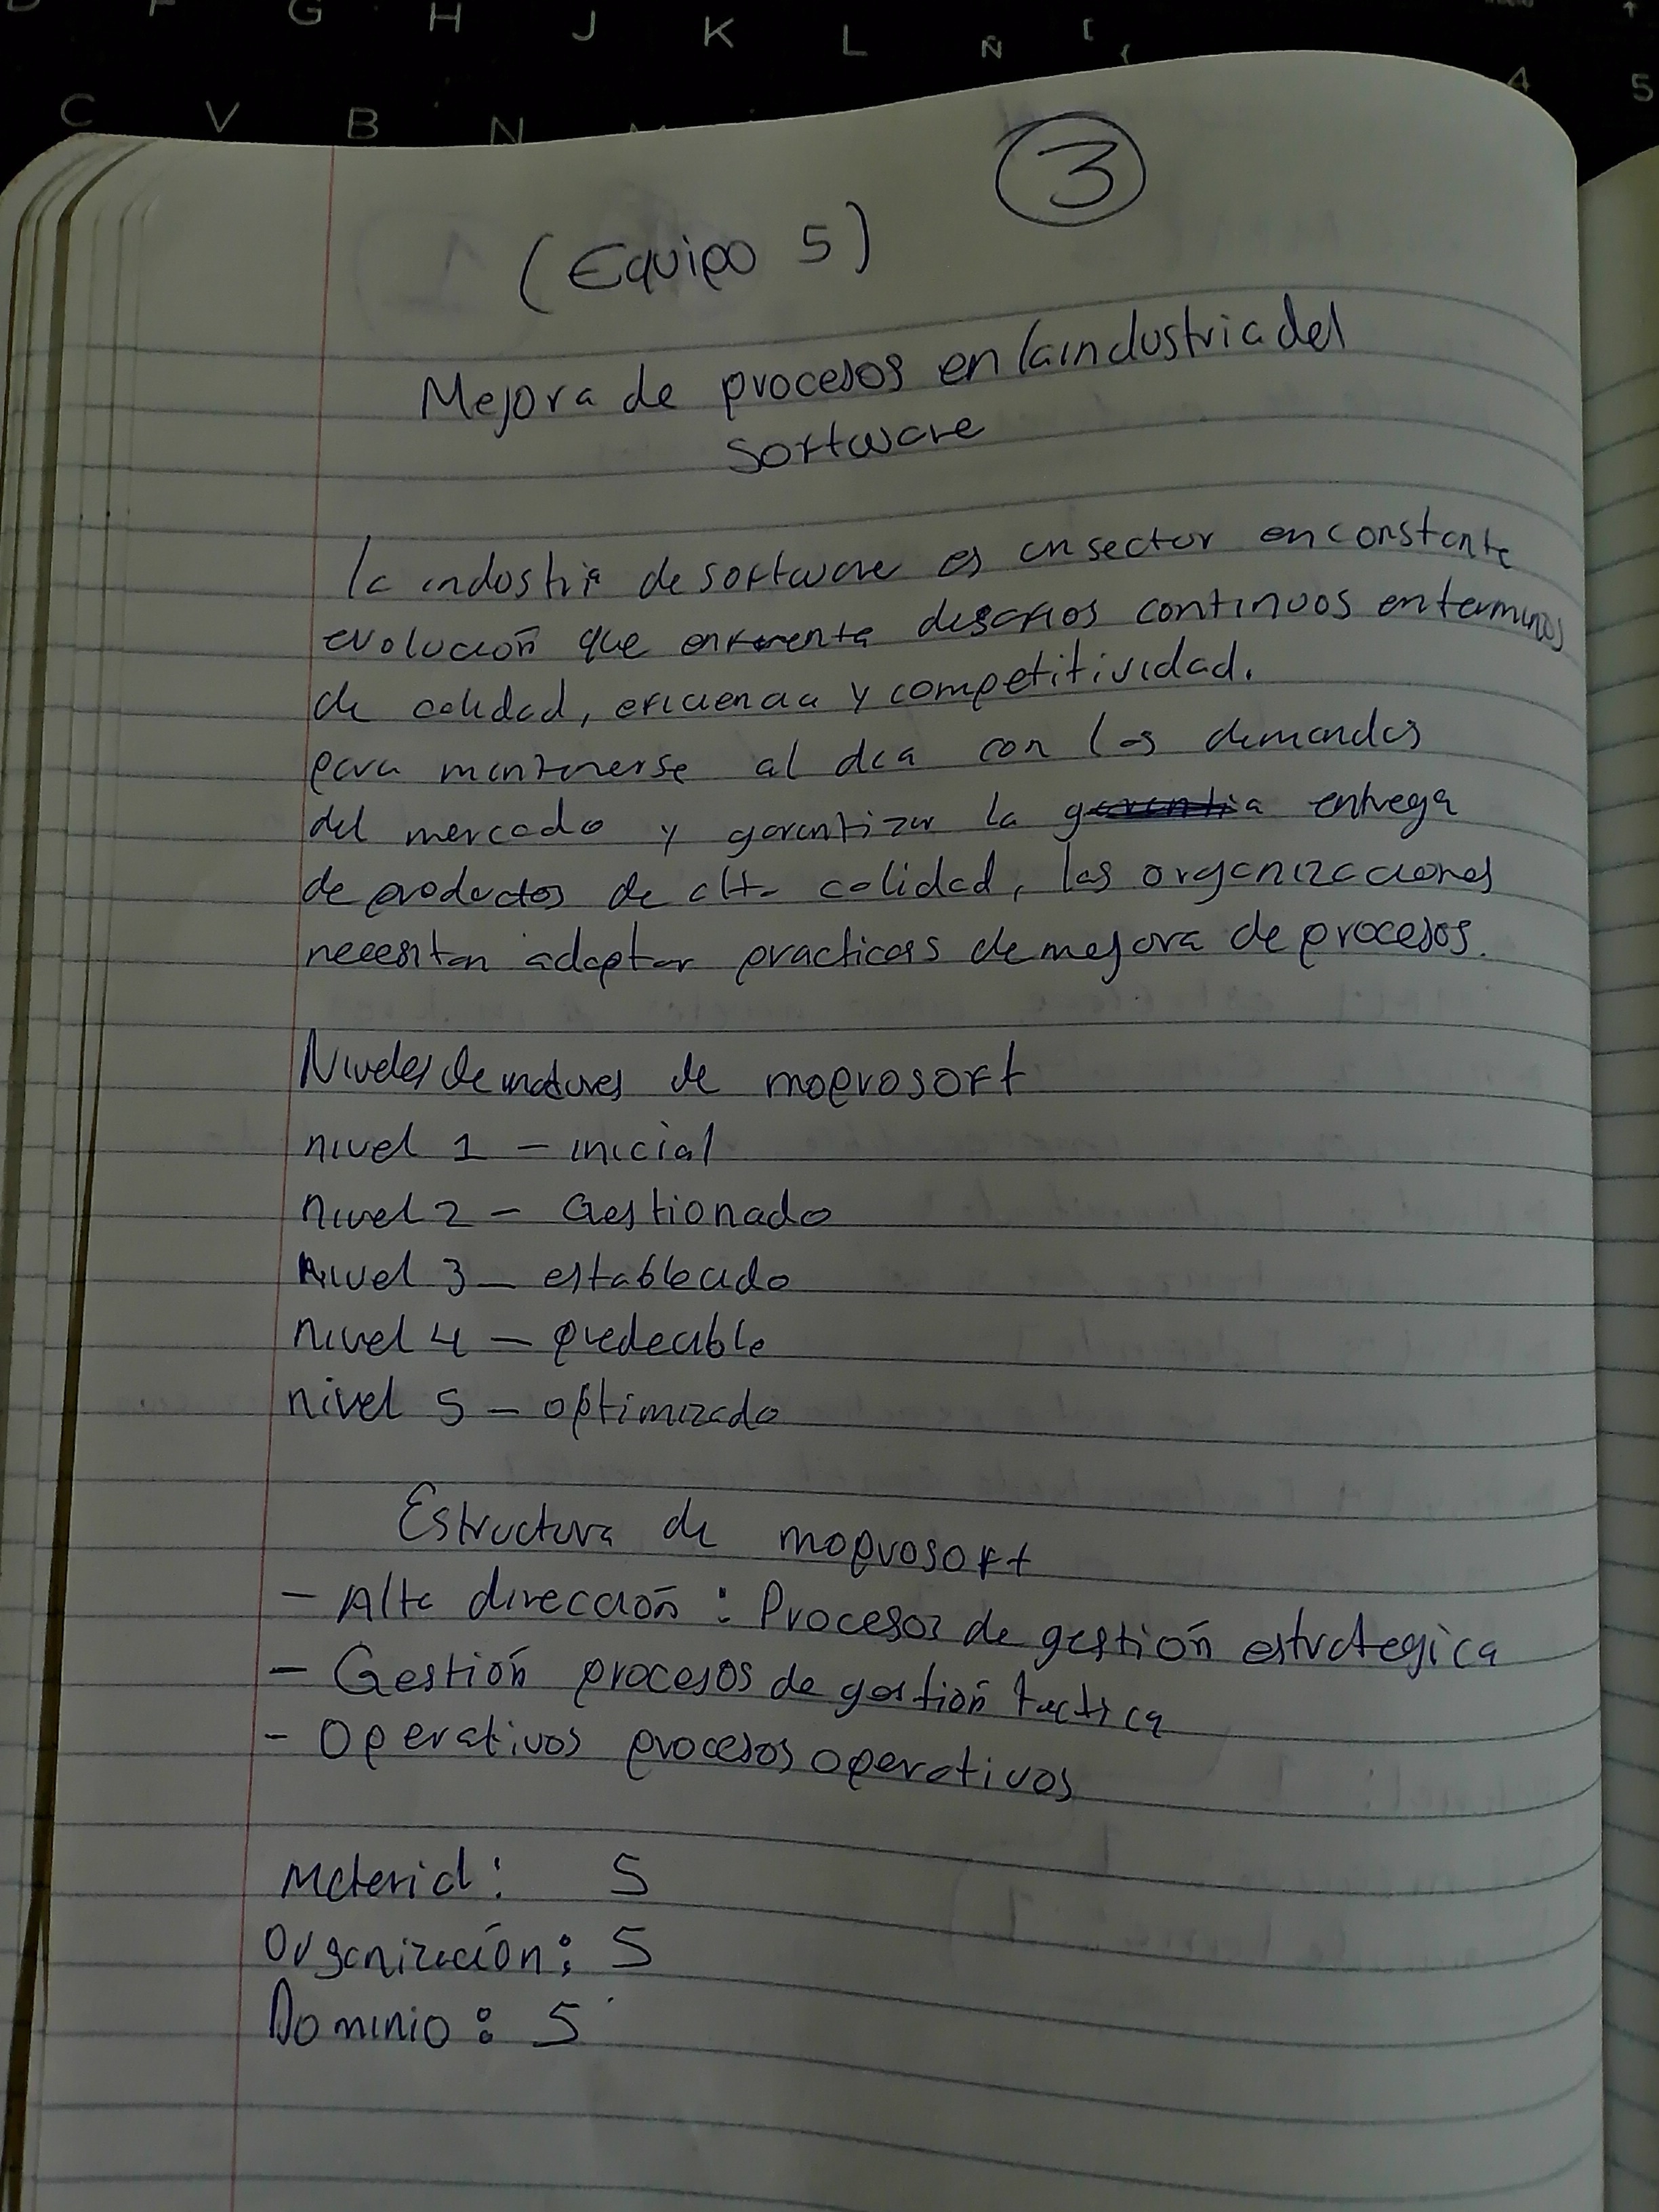 G H J K L Ñ
C V B N
4 5
3
(Equipo 5)
Mejora de procesos en la industria del
software
la industria de software es un sector en constante
evolución que enfrenta desafios continuos en terminos
de calidad, eficiencia y competitividad.
para mantenerse al dia con las demandas
del mercado y garantizar la entrega
de productos de alta calidad, las organizaciones
necesitan adoptar practicas de mejora de procesos.
Niveles de madures de moprosoft
nivel 1 – inicial
nivel 2 – Gestionado
Nivel 3 – establecido
nivel 4 – predecible
nivel 5 – optimizado
Estructura de moprosoft
– Alta dirección : Procesos de gestión estrategica
– Gestión procesos de gestión tactica
– Operativos procesos operativos
Material: 5
Organización: 5
Dominio: 5